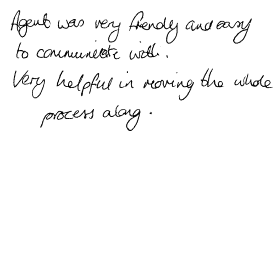 Agent was very friendly and easy
to communicate with.
Very helpful in moving the whole
process along.